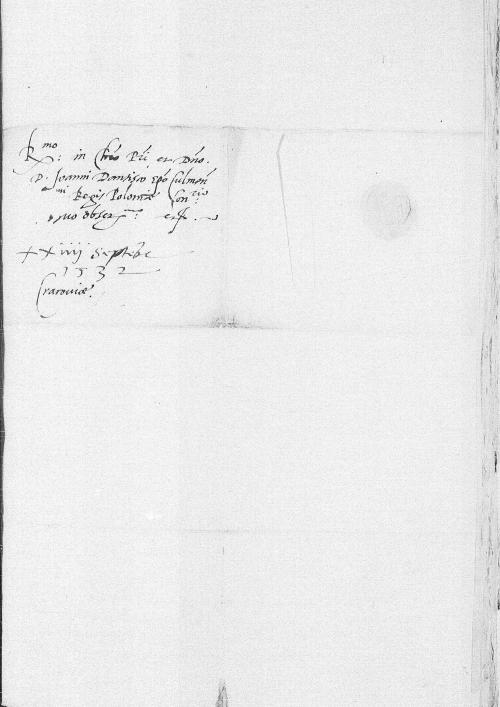 R.mo in Chro Pri et Dno.
D. Joanni Dantisco Epo Culmen
Regis Poloniae Con:rio
suo obser: etc.
XXiiij Septebr
1532
Cracoviae.